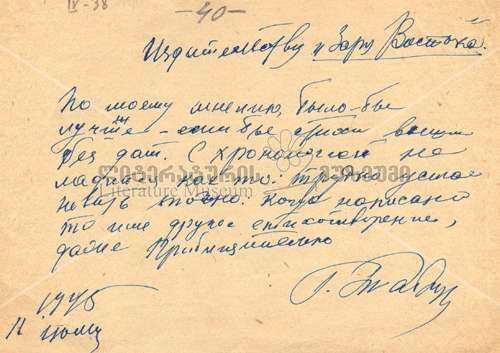 IV-38
-40-
Издательству "Заря Востока".
По моему мнению, было-бы
лучше - если бы стихи вошли
без дат. С хронологией не
ладится часто: трудно устано-
новить точно: когда написано
то или другое стихотворение,
даже приблизительно
ლიტერატურის მუზეუმი
Literature Museum
Г. Табидзе
1945
11